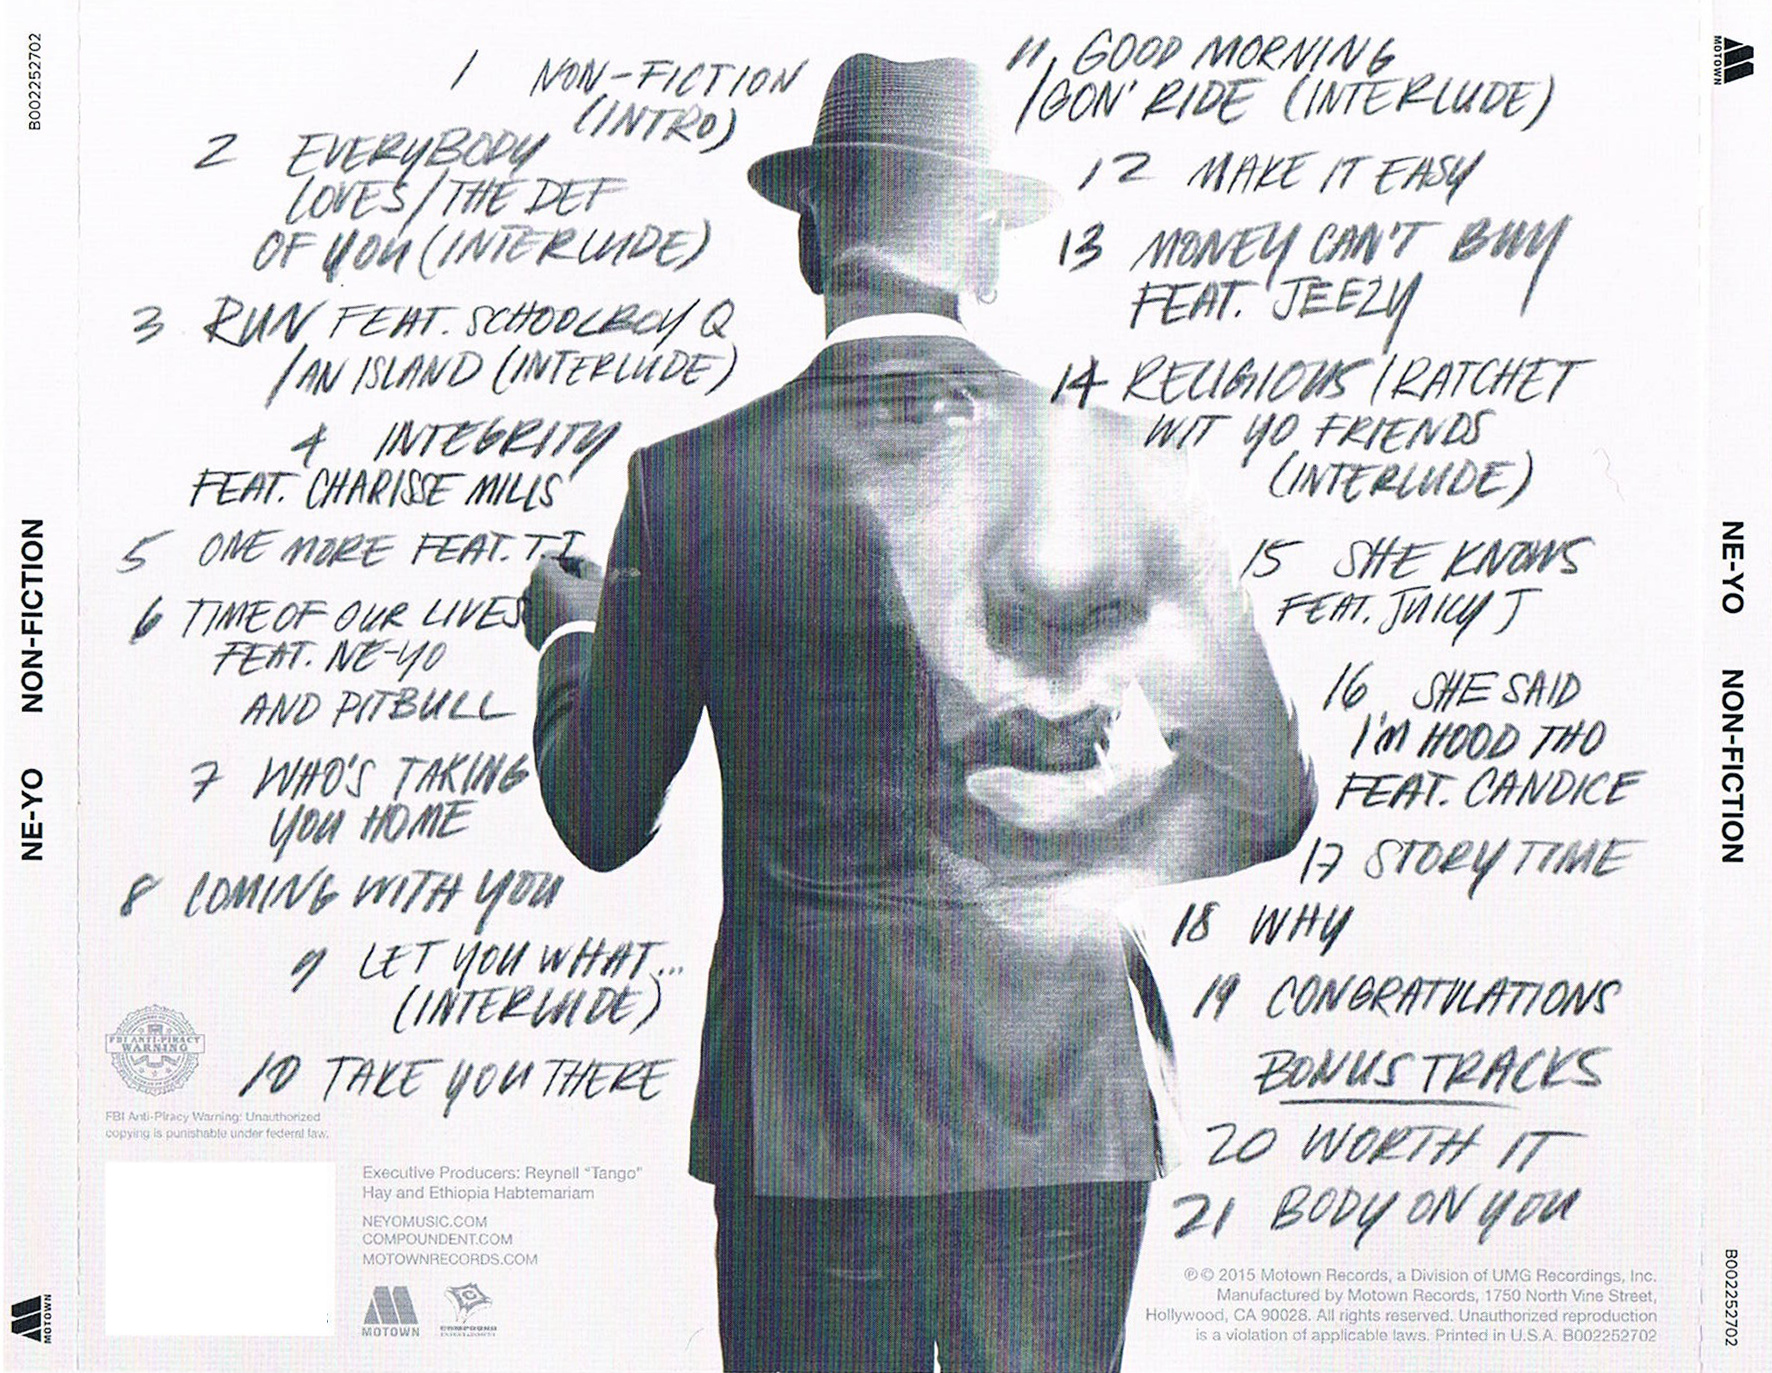 B002252702
NE-YO NON-FICTION
MOTOWN
1 NON-FICTION
(INTRO)
2 EVERYBODY
LOVES/THE DEF
OF YOU (INTERLUDE)
3 RUN FEAT. SCHOOLBOY Q
/AN ISLAND (INTERLUDE)
4 INTEGRITY
FEAT. CHARISSE MILLS
5 ONE MORE FEAT. T.I
6 TIME OF OUR LIVES
FEAT. NE-YO
AND PITBULL
7 WHO'S TAKING
YOU HOME
8 COMING WITH YOU
9 LET YOU WHAT...
(INTERLUDE)
10 TAKE YOU THERE
FBI ANTI-PIRACY
WARNING
FBI Anti-Piracy Warning: Unauthorized
copying is punishable under federal law.
Executive Producers: Reynell "Tango"
Hay and Ethiopia Habtemariam
NEYOMUSIC.COM
COMPOUNDENT.COM
MOTOWNRECORDS.COM
MOTOWN
COMPOUND
11 GOOD MORNING
/GON' RIDE (INTERLUDE)
12 MAKE IT EASY
13 MONEY CAN'T BUY
FEAT. JEEZY
14 RELIGIOUS/RATCHET
WIT YO FRIENDS
(INTERLUDE)
15 SHE KNOWS
FEAT. JUICY J
16 SHE SAID
I'M HOOD THO
FEAT. CANDICE
17 STORY TIME
18 WHY
19 CONGRATULATIONS
BONUS TRACKS
20 WORTH IT
21 BODY ON YOU
℗© 2015 Motown Records, a Division of UMG Recordings, Inc.
Manufactured by Motown Records, 1750 North Vine Street,
Hollywood, CA 90028. All rights reserved. Unauthorized reproduction
is a violation of applicable laws. Printed in U.S.A. B002252702
MOTOWN
NE-YO NON-FICTION
B002252702